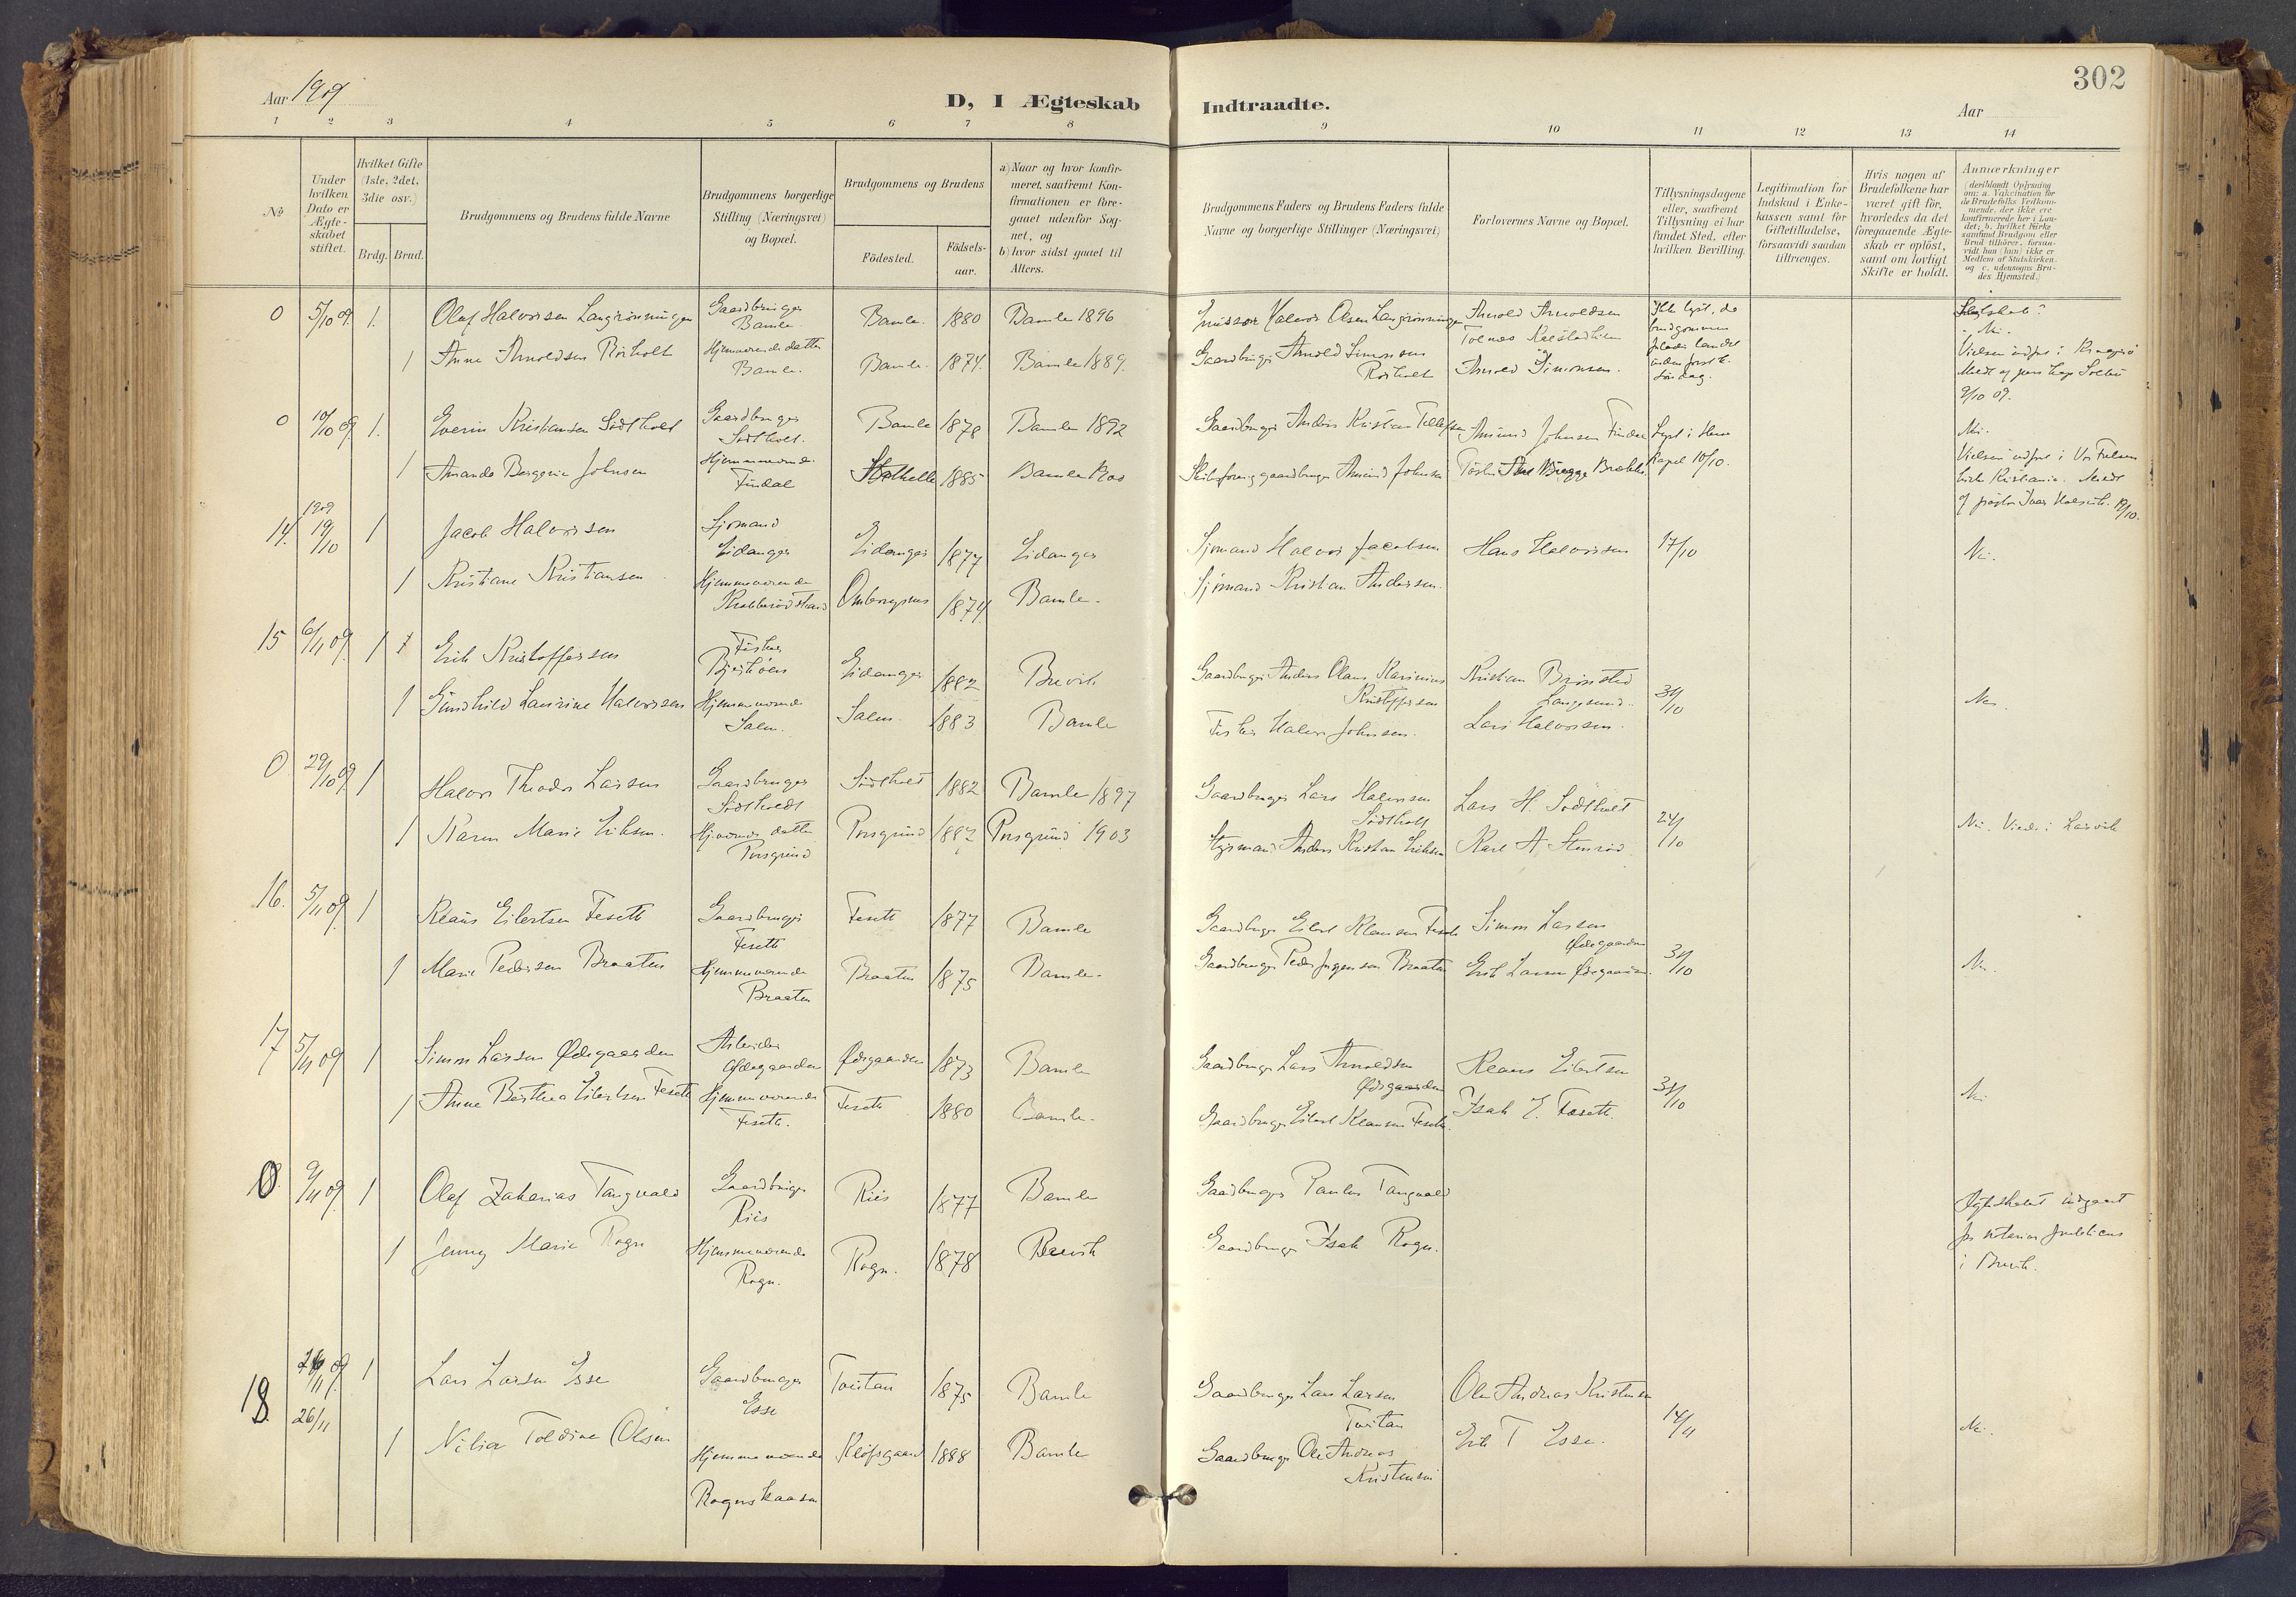 302
Aar 1909
D, I Ægteskab Indtraadte.
Aar
1 2 3 4 5 6 7 8 9 10 11 12 13 14
No
Under hvilken Dato er Ægteskabet stiftet.
Hvilket Gifte (1ste, 2det, 3die osv.)
Brdg. Brud.
Brudgommens og Brudens fulde Navne
Brudgommens borgerlige Stilling (Næringsvei) og Bopæl.
Brudgommens og Brudens
Fødested. Fødselsaar.
a) Naar og hvor konfirmeret, saafremt Konfirmationen er foregaaet udenfor Sognet, og
b) hvor sidst gaaet til Alters.
Brudgommens Faders og Brudens Faders fulde Navne og borgerlige Stillinger (Næringsvei)
Forlovernes Navne og Bopæl.
Tillysningsdagene eller, saafremt Tillysning ei har fundet Sted, efter hvilken Bevilling.
Legitimation for Indskud i Enkekassen samt for Giftetilladelse, forsaavidt saadan tiltrænges.
Hvis nogen af Brudefolkene har været gift før, hvorledes da det foregaaende Ægteskab er opløst, samt om lovligt Skifte er holdt.
Anmærkninger
(deriblandt Oplysning om: a. Vakcination for de Brudefolks Vedkommende, der ikke ere konfirmerede her i Landet; b. hvilket Kirkesamfund Brudgom eller Brud tilhører, forsaavidt han (hun) ikke er Medlem af Statskirken, og c. udensogns Brudes Hjemsted.)
0 5/10 09. 1. Olaf Halvorsen Langrønningen Gaardbruger Bamle Bamle. 1880 Bamle 1896 Halvor Olsen Langrønningen Arnold Arnoldsen
1 Anne Arnoldsen Rørholt Hjemmeværende datter Bamle. Bamle. 1874. Bamle 1889. Gaardbruger Arnold Simonsen Rørholt Arnold Simonsen.
Ikke lyst, da brudgommen
Nei.
9/10 09.
0 10/10 09 1. Kristiansen Sødtholt Gaardbruger Sødtholt. Bamle 1878 Bamle 1892 Gaardbruger Anders Kristian Tellefsen Amund Johnsen Findal Lyst i Herre
1 Amanda Bergine Johnsen Hjemmeværende Findal Stathelle 1885 Bamle Amund Johnsen Kapel 10/10.
Nei.
Vielsen udført i Vor Frelsers kirke Kristiania.
19/10.
1909
14. 19/10 1 Jacob Halvorsen Sjømand Eidanger Eidanger 1877 Eidanger Sjømand Halvor Jacobsen Hans Halvorsen 17/10 Nei.
1 Kristiane Kristiansen Hjemmeværende Krabberødstrand 1874 Bamle. Sjømand Kristian Andersen.
15 6/11 09. 1 Erik Kristoffersen Fisker Eidanger 1882 Brevik Gaardbruger Anders Olaus Karinius Kristoffersen Kristian Brønsted Langesund. 31/10 Nei.
1 Gunhild Laurine Halvorsen Hjemmeværende Salen. Salen. 1883 Bamle Fisker Halvor Johnsen. Lars Halvorsen.
0 29/10 09 1 Halvor Theodor Larsen Gaardbruger Sødtholt Sødtholt 1882 Bamle 1897 Gaardbruger Lars Halvorsen Sødtholt Lars H. Sødtholt 24/10 Nei. Viede i Larvik
1 Karen Marie Eriksen. datter Porsgrund Porsgrund 1882 Porsgrund 1903 Styrmand Anders Kristian Eriksen Karl A. Stenrød
16. 5/11 09. 1 Klaus Eilertsen Feseth Gaardbruger Feseth Feseth 1877 Bamle Gaardbruger Eilert Klausen Feseth Simon Larsen Ødegaarden 31/10 Nei.
1 Marie Pedersen Braaten Hjemmeværende Braaten Braaten 1875 Bamle. Gaardbruger Peder Jørgensen Braaten Erik Larsen Ødegaarden.
17 5/11 09 1 Simon Larsen Ødegaarden Arbeider Ødegaarden Ødegaarden 1873 Bamle Gaardbruger Lars Arnoldsen Ødegaarden Klaus Eilertsen 31/10 Nei
1 Anne Berthea Eilertsen Feseth Hjemmeværende Feseth. Feseth 1880 Bamle. Gaardbruger Eilert Klausen Feseth. Isak E. Feseth.
0 9/11 09. 1 Olaf Zakarias Tangvald Gaardbruger Riis Riis 1877 Bamle Gaardbruger Paulus Tangvald
1 Jenny Marie Rogn Hjemmeværende Rogn. Rogn. 1878 Brevik Gaardbruger Isak Rogn.
Ægteskabet indgaaet for notarius publicus i Brevik.
18. 26/11 09. 1 Lars Larsen Esse Gaardbruger Esse Tveitan 1875 Bamle Gaardbruger Lars Larsen Tveitan Ole Andreas Kristensen 14/11 Nei.
26/11 1 Nilia Toldine Olsen Hjemmeværende Rognskaasen Kleifsgaard 1888 Bamle Gaardbruger Ole Andreas Kristensen Erik T. Esse.